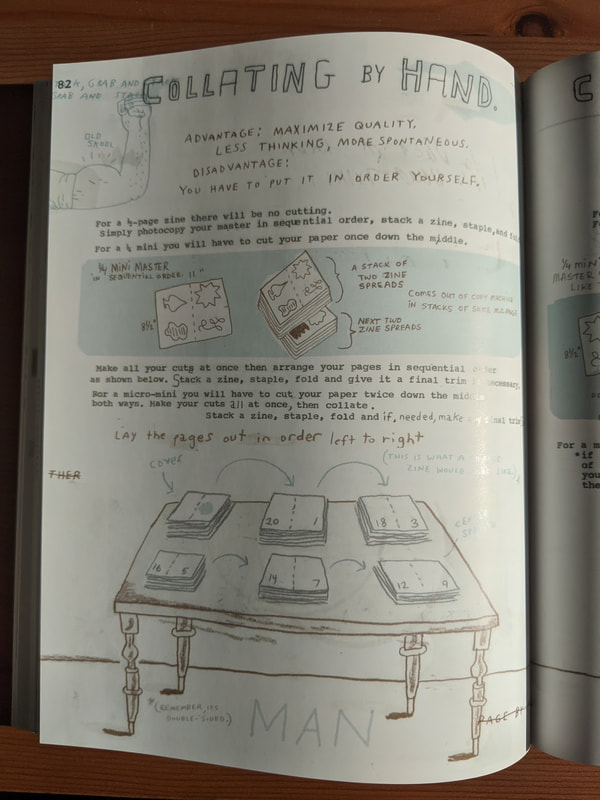 82
GRAB AND
GRAB AND
COLLATING BY HAND.
OLD
SKOOL
ADVANTAGE: MAXIMIZE QUALITY,
LESS THINKING, MORE SPONTANEOUS.
DISADVANTAGE:
YOU HAVE TO PUT IT IN ORDER YOURSELF.
For a ½-page zine there will be no cutting.
Simply photocopy your master in sequential order, stack a zine, staple, and
For a ¼ mini you will have to cut your paper once down the middle.
¼ MINI MASTER
IN "SEQUENTIAL ORDER"
11"
8½"
A STACK OF
TWO ZINE
SPREADS
COMES OUT OF COPY MACHINE
IN STACKS OF
NEXT TWO
ZINE SPREADS
Make all your cuts at once then arrange your pages in sequential order
as shown below. Stack a zine, staple, fold and give it a final trim necessary.
For a micro-mini you will have to cut your paper twice down the
both ways. Make your cuts all at once, then collate.
Stack a zine, staple, fold and if, needed, make final trim
LAY the pages out in order left to right
COVER
(THIS IS WHAT A
ZINE WOULD
THER
20 1
18 3
16 5
14 7
12 9
*(REMEMBER, ITS
DOUBLE-SIDED.)
MAN
PAGE BY
C
¼ MINI
MASTER
LIKE
8½"
For a m
*if
of
you
the